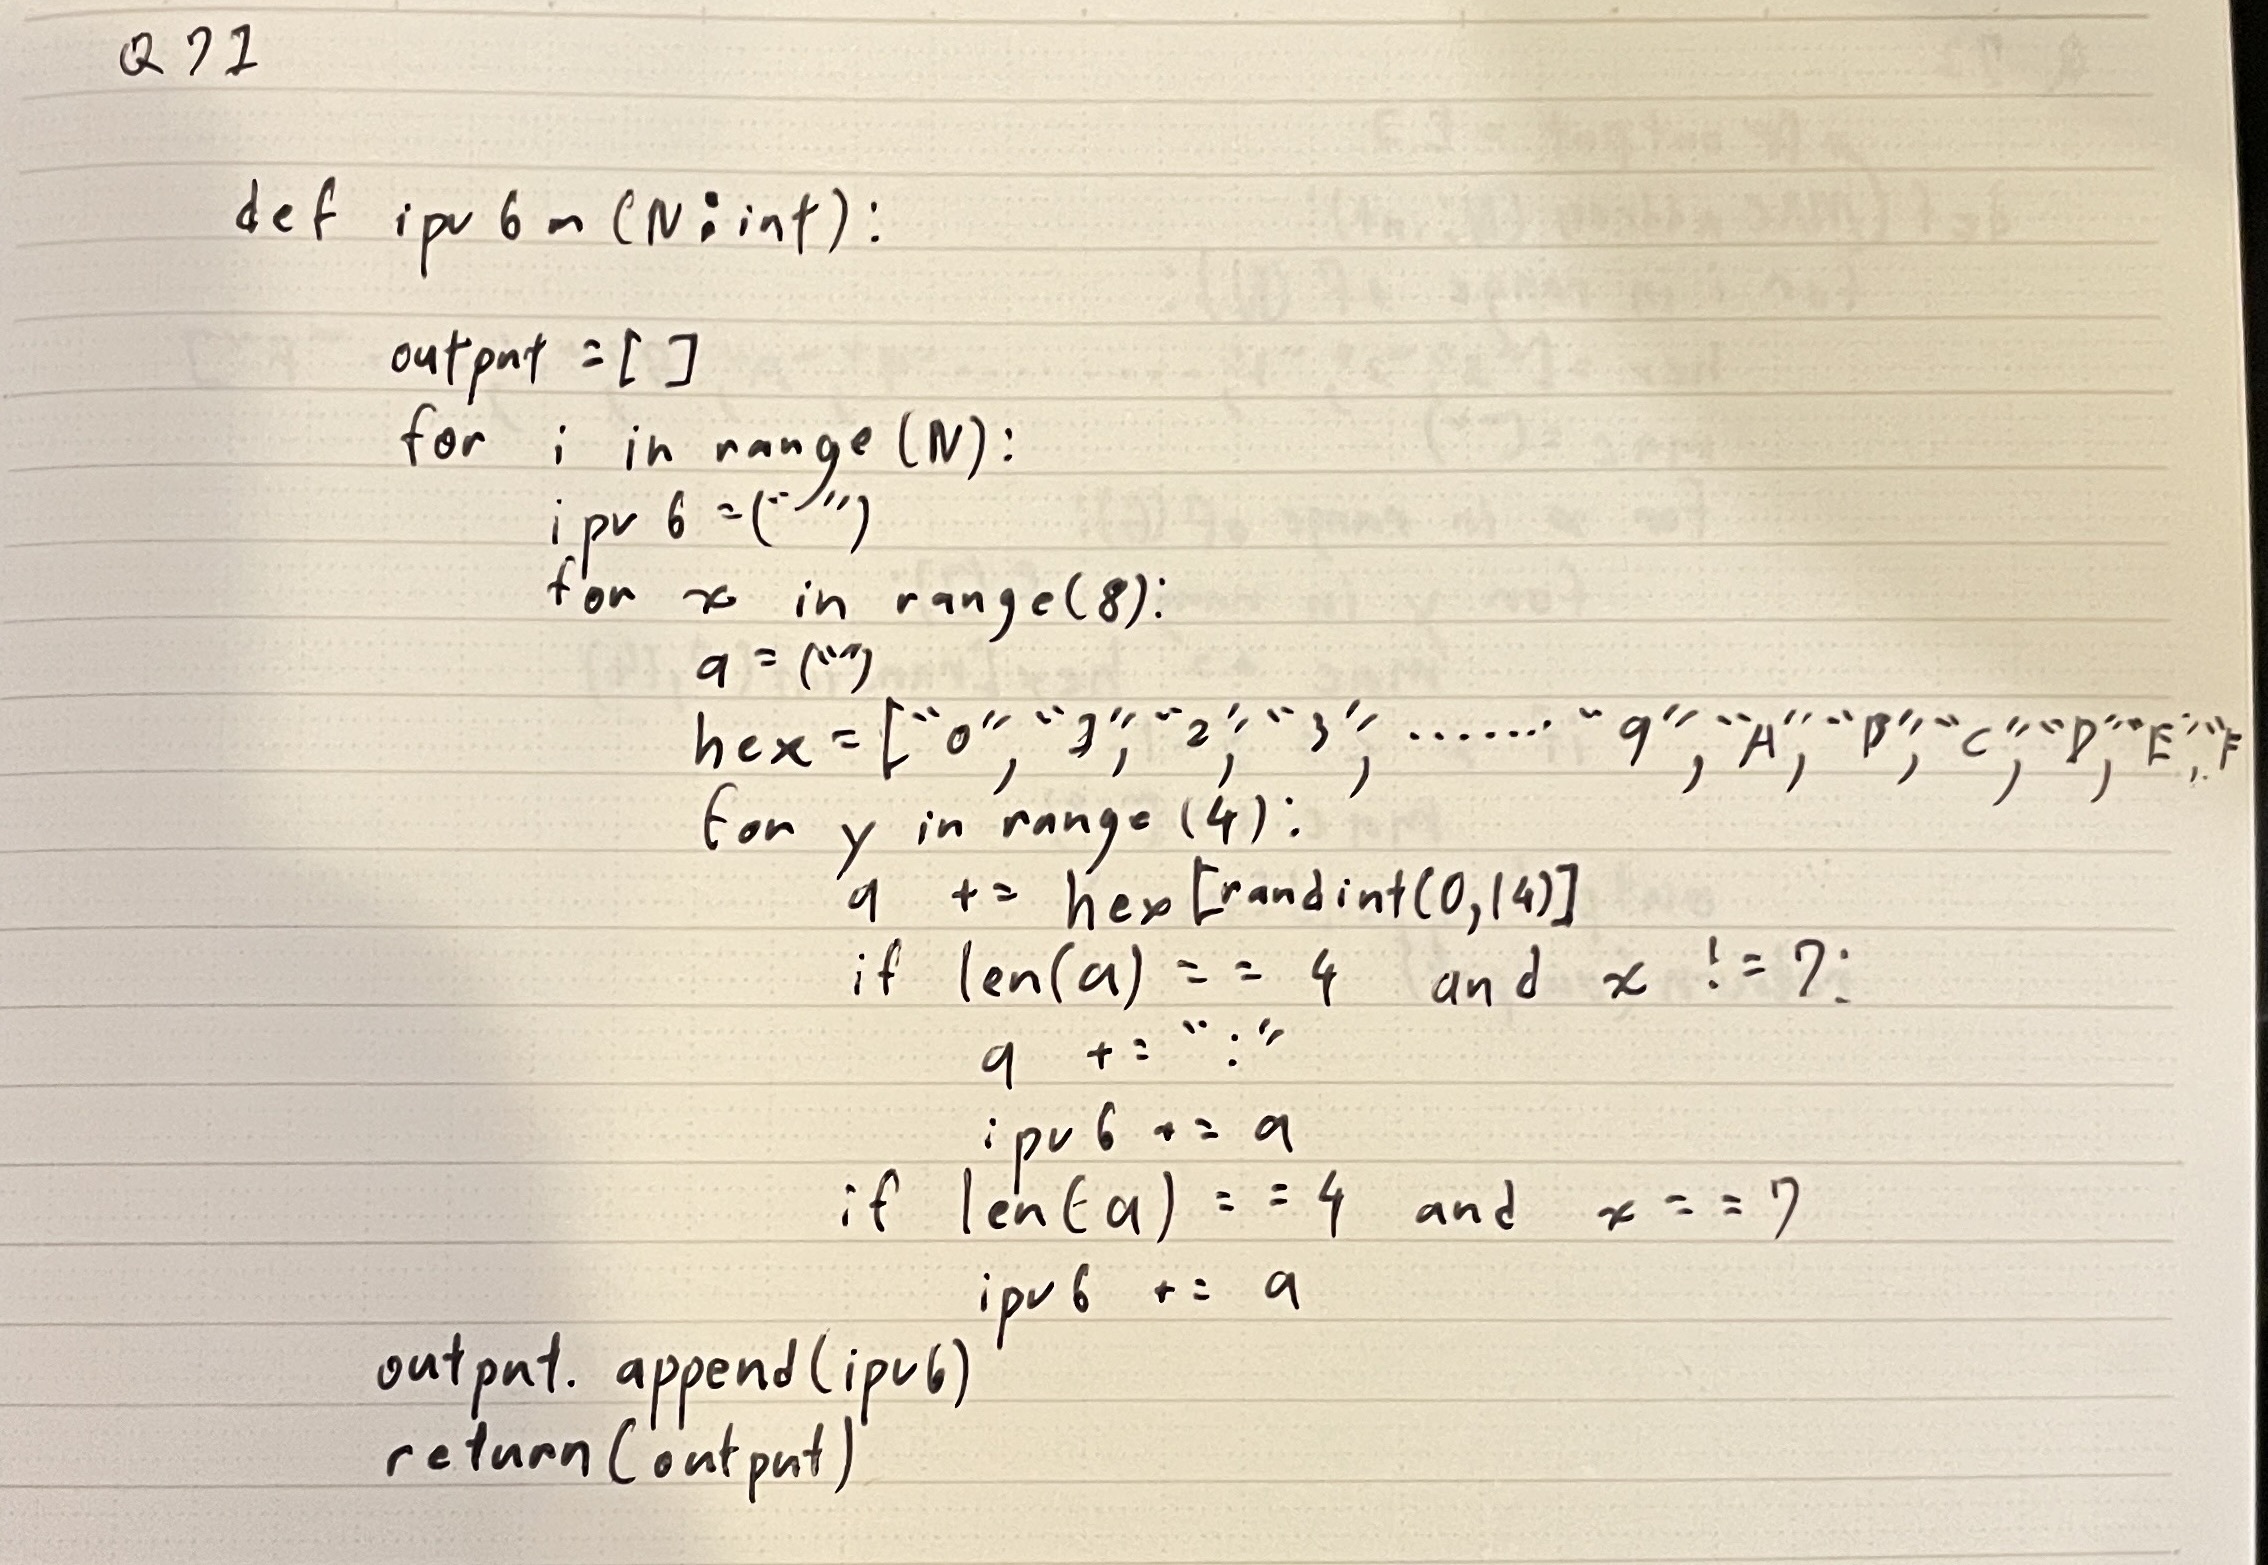 Q 71
def ipv6m (N:int):
output = [ ]
for i in range (N):
ipv6 = ("")
for x in range(8):
a = ("")
hex = ["0", "1", "2", "3", ....... "9", "A", "B", "C", "D", "E", "F
for y in range (4):
a += hex[randint(0,14)]
if len(a) == 4 and x != 7:
a += ":"
ipv6 += a
if len(a) == 4 and x == 7
ipv6 += a
output. append(ipv6)
return(output)